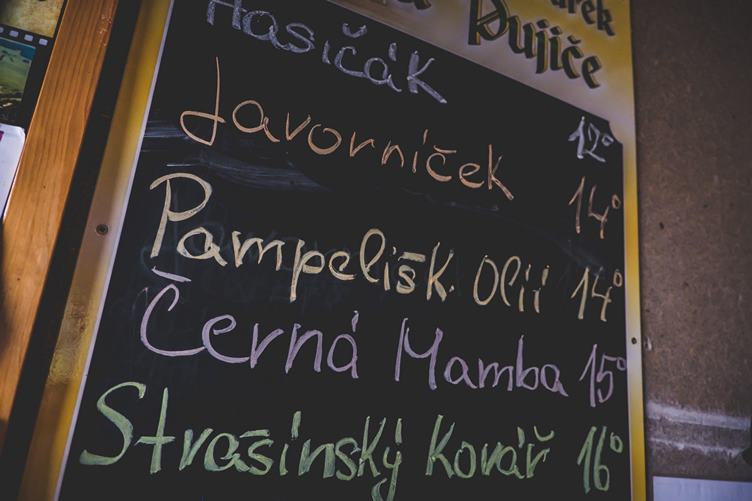 Pujiče
Hasičák 12°
Javorníček 14°
Pampelišk. Olii 14°
Černá Mamba 15°
Strašínský Kovář 16°